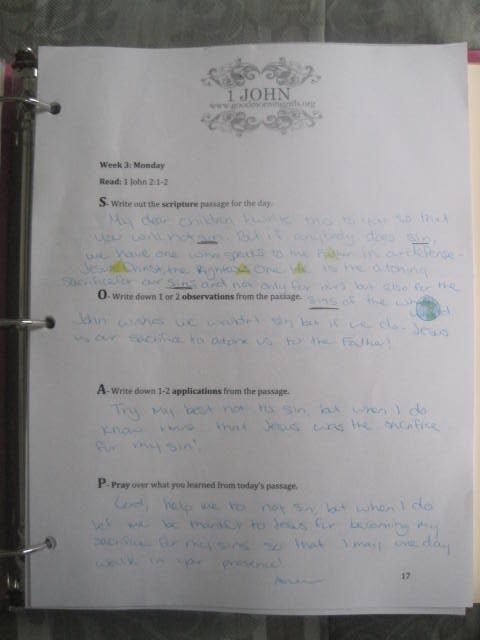 1 JOHN
www.goodmorninggirls.org
Week 3: Monday
Read: 1 John 2:1-2
S- Write out the scripture passage for the day.
My dear children, I write this to you so that
you will not sin. But if anybody does sin,
we have one who speaks to the Father in our defense-
Jesus Christ, the Righteous One. He is the atoning
sacrifice for our sins and not only for ours but also for the
O- Write down 1 or 2 observations from the passage. sins of the world
John wishes we wouldn't sin but if we do- Jesus
is our sacrifice to atone us to the Father!
A- Write down 1-2 applications from the passage.
Try my best not to sin, but when I do
know that Jesus was the sacrifice
for my sin!
P- Pray over what you learned from today's passage.
Lord, help me to not sin, but when I do
let me be thankful to Jesus for becoming my
sacrifice for my sins so that I may one day
walk in your presence!
Amen
17